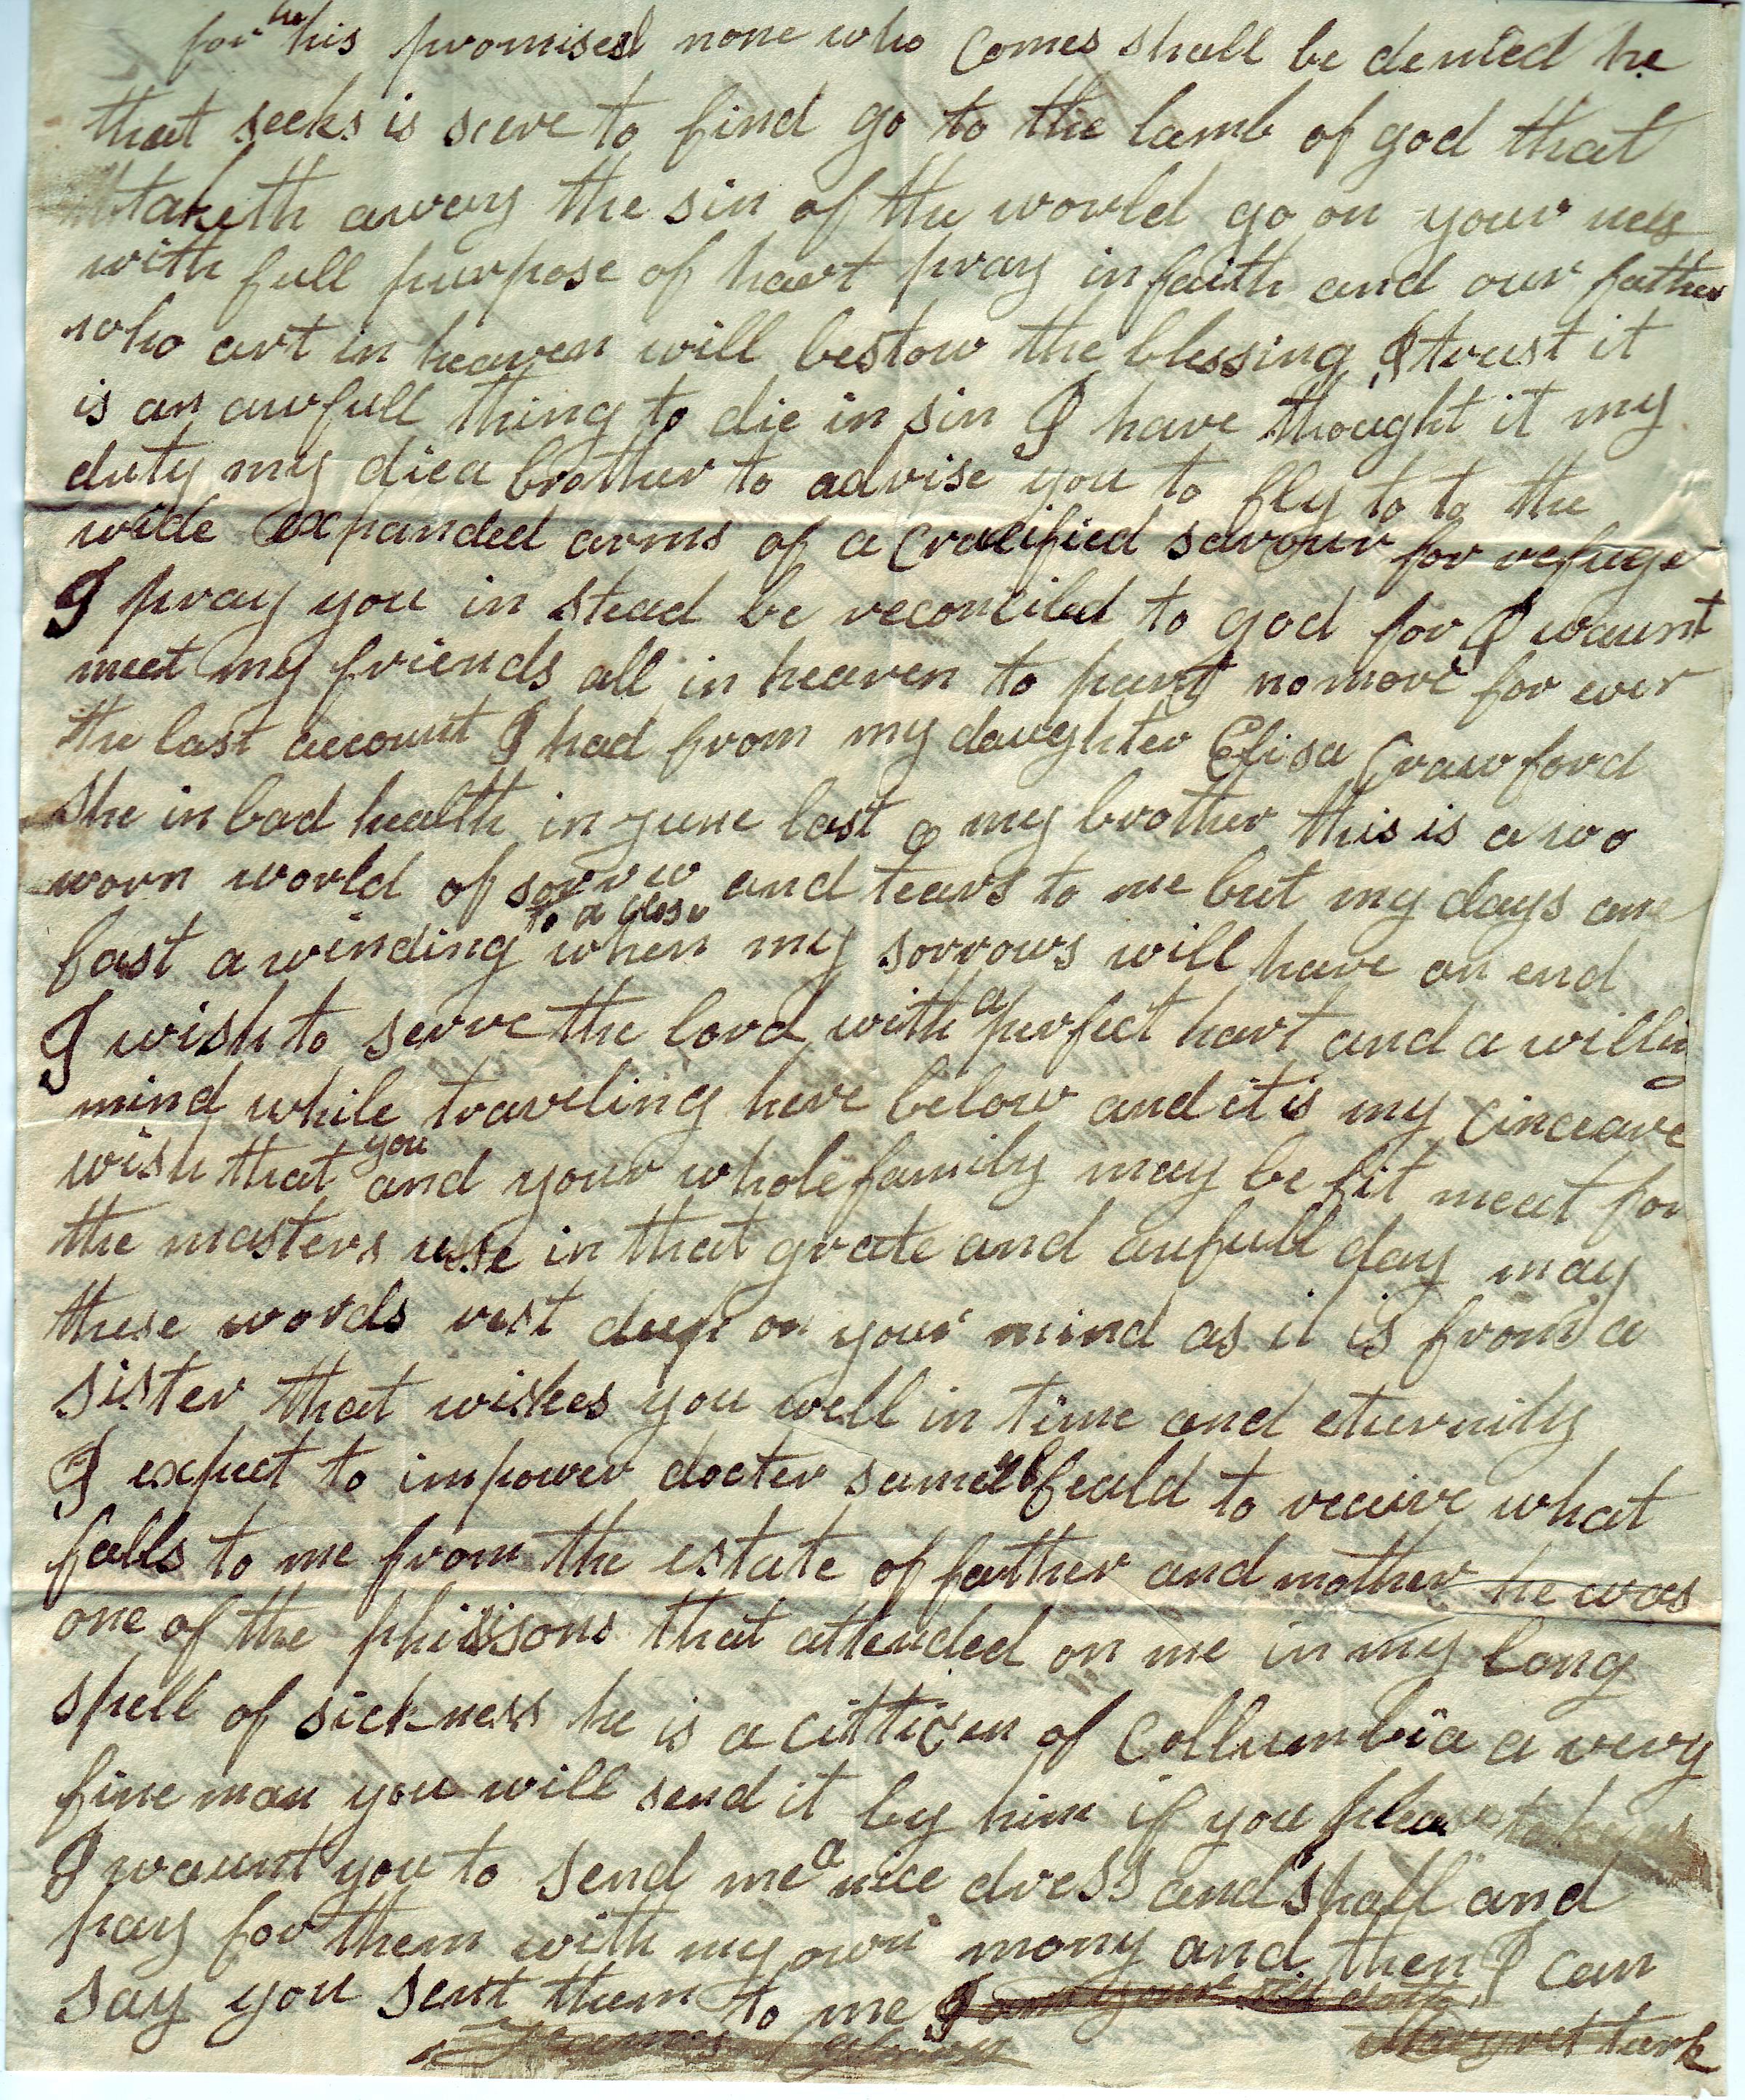 for he his promised none who comes shall be denied he
that seeks is sure to find go to the lamb of god that
taketh away the sin of the world go on your nees
with full purpose of hart pray in faith and our father
who art in heaven will bestow the blessing I trust it
is an awfull thing to die in sin I have thought it my
duty my diea brother to advise you to fly to to the
wide expanded arms of a crucified savour for refuge
I pray you in stead be reconciled to god for I waunt
meet my friends all in heaven to part no more for ever
the last account I had from my daughter Elisa Crawford
she in bad health in june last o my brother this is a wo
worn world of sorrow and tears to me but my days are
fast a winding to a close when my sorrows will have an end
I wish to serve the lord with a perfect hart and a willing
mind while traveling here below and it is my cinceare
wish that you and your whole family may be fit meat for
the masters usse in that grate and aufull day may
these words rest deep on your mind as it is from a
sister that wishes you well in time and eternity
I expect to impower docter samuel feald to receive what
falls to me from the estate of father and mother he was
one of the phisisons that attended on me in my long
spell of sickness he is a citticen of Collumbia a very
fine man you will send it by him if you please
I waunt you to send me a nice dress and shall and
pay for them with my own mony and then I can
say you sent them to me I am your
Margret turk